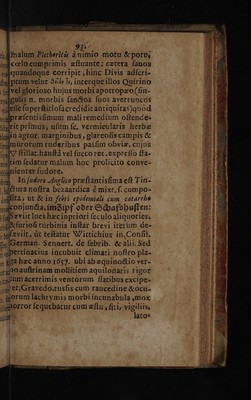 93.
malum Plethoricis à nimio motu & potu,
cœlo cumprimis æstuante: cætera sanos
quandoque corripit, hinc Divis adscri-
ptum velut interque illos Quirino
vel glorioso hujus morbi apotropæo (sin-
gulis n. morbis sanctos suos averruncos
esse superstitiosa credidit antiquitas) quod
præsentissimum mali remedium ostende-
rit primus, usum sc. vermicularis herbæ
in agror. marginibus, glareosis campis &
murorum ruderibus passim obviæ, cujus
stillat. haustâ vel succo rec. expresso sta-
tim sedatur malum hoc prolicito conve-
nienter sudore.
In sudore Anglico præstantissima est Tin-
ctura nostra bezaardica è mixt. s. compo-
sita, ut & in febri epidemiali cum catarrho
conjuncta, imZipf oder Schafshusten:
Sæviit lues hæc inpriori seculo aliquoties,
& furiosâ turbinis instar brevi iterum de-
sæviit, ut testatur Wittichius in Consil.
German. Sennert. de febrib. & alii. Sed
pertinacius incubuit climati nostro pla-
ga hæc anno 1657. ubi ab æquinoctio ver-
no austrinam mollitiem aquilonaris rigor
cum acerrimis ventorum flatibus excipe-
ret, Gravedo, tussis cum raucedine & ocu-
lorum lachrymis morbi incunabula, mox
torror sequebatur cum æstu, siti, vigiliis,
lato-